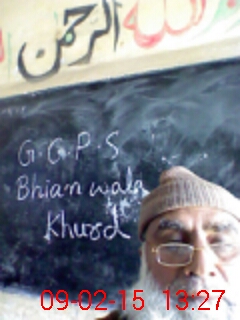 الله الرحمن
G.G.P.S
Bhian wala
Khurd
09-02-15 13:27